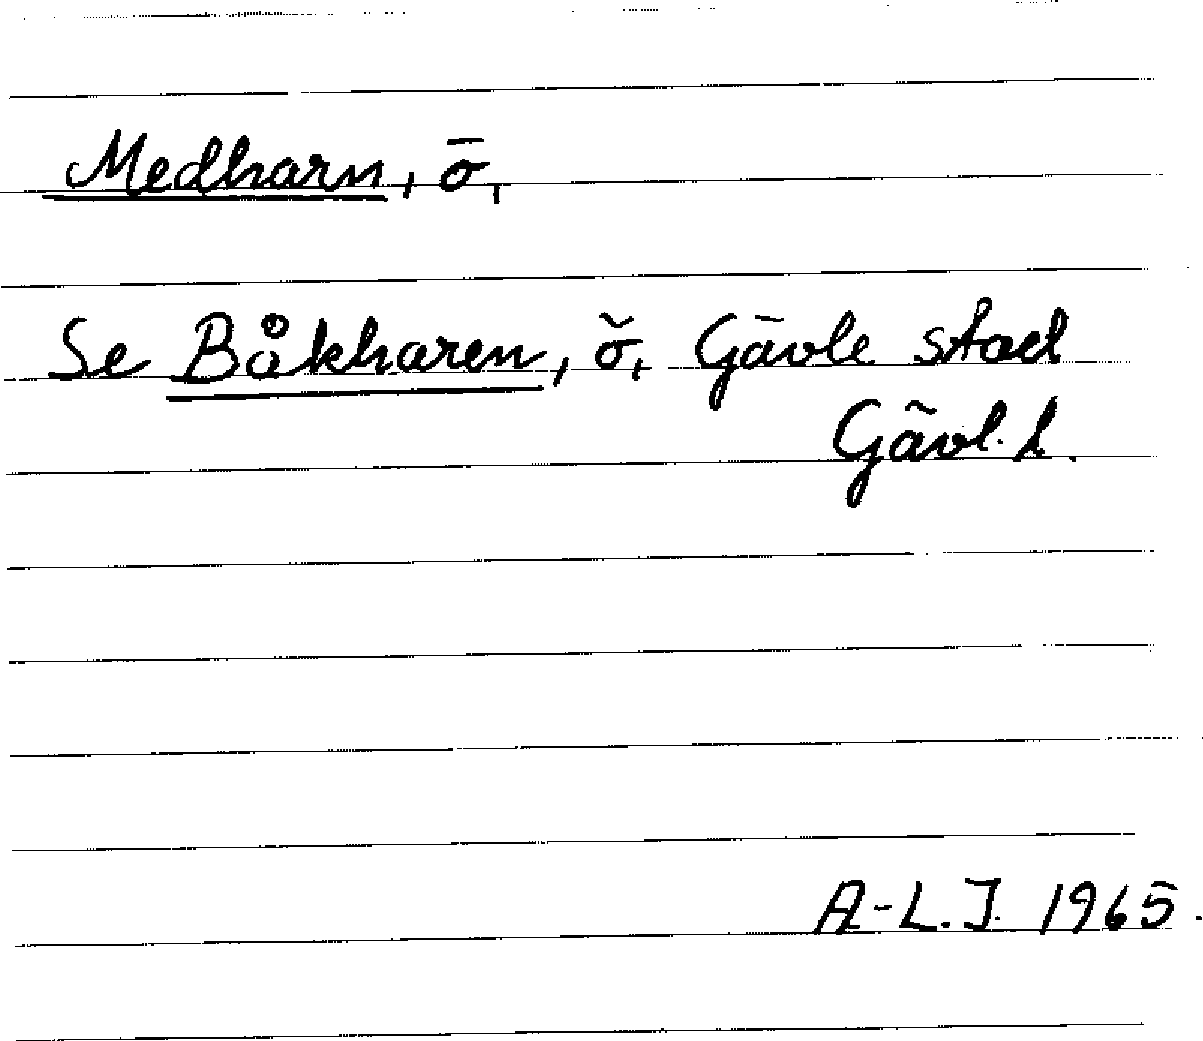 Medharn, ö,
Se Båkharen, ö, Gävle stad
Gävl. l.
A-L.J. 1965.